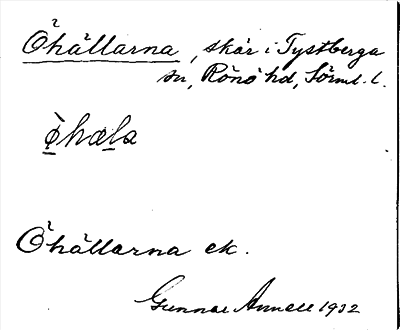 Öhällarna, skär i Tystberga
sn, Rönö hd, Sörml. l.
ø̀hæla
Öhällarna ek.
Gunnar Annell 1932